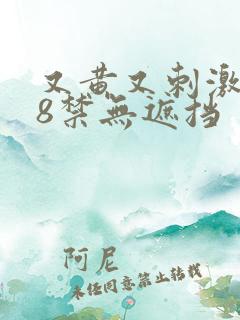 又黄又刺激
8禁無遮挡
阿尼
未经同意禁止转载